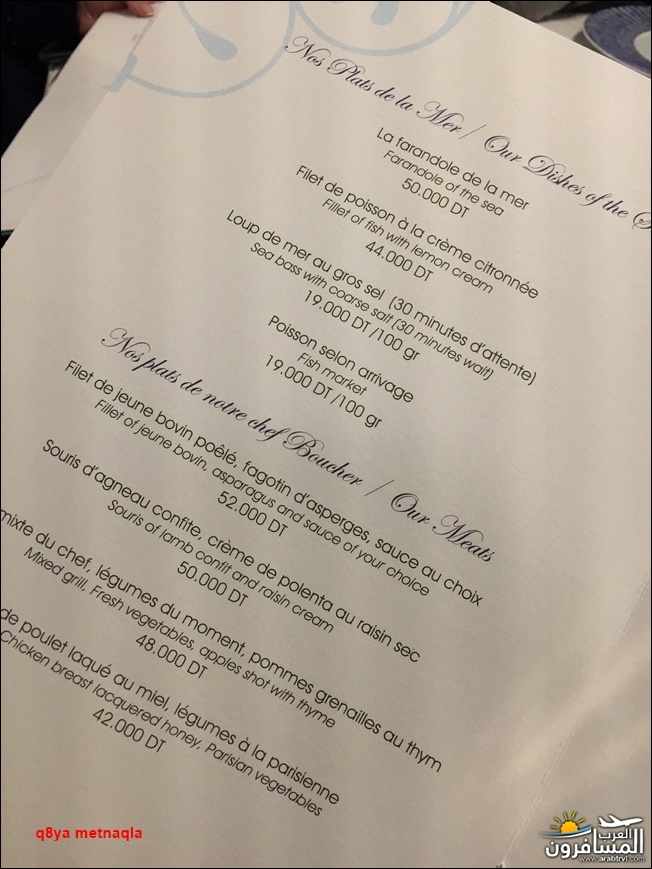 Nos Plats de la Mer / Our Dishes of the
La farandole de la mer
Farandole of the sea
50.000 DT
Filet de poisson à la crème citronnée
Fillet of fish with lemon cream
44.000 DT
Loup de mer au gros sel (30 minutes d'attente)
Sea bass with coarse salt (30 minutes wait)
19.000 DT /100 gr
Poisson selon arrivage
Fish market
19.000 DT /100 gr
Nos plats de notre chef Boucher / Our Meats
Filet de jeune bovin poêlé, fagotin d'asperges, sauce au choix
Fillet of jeune bovin, asparagus and sauce of your choice
52.000 DT
Souris d'agneau confite, crème de polenta au raisin sec
Souris of lamb confit and raisin cream
50.000 DT
mixte du chef, légumes du moment, pommes grenailles au thym
Mixed grill, Fresh vegetables, apples shot with thyme
48.000 DT
de poulet laqué au miel, légumes à la parisienne
Chicken breast lacquered honey, Parisian vegetables
42.000 DT
q8ya metnaqla
العرب
المسافرون
www.arabtrvl.com